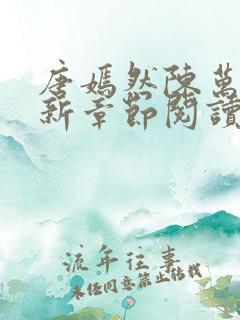 唐嫣然陳萬
新章節閱讀
流年往事
未经同意禁止转载